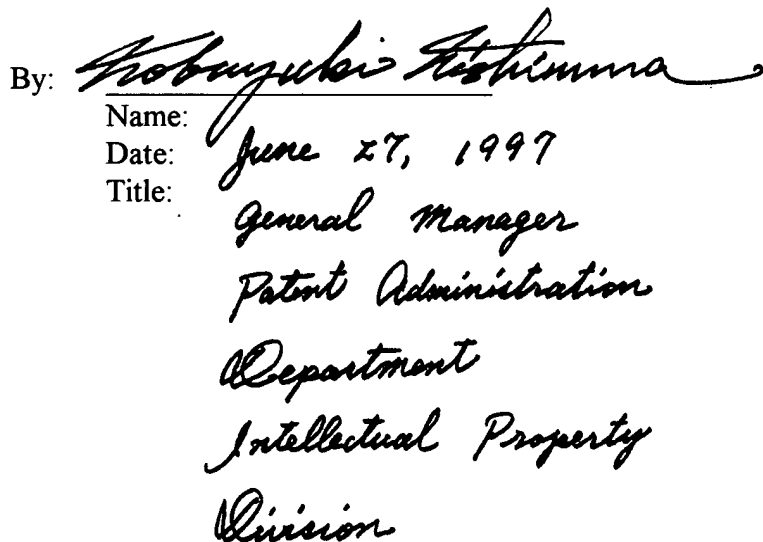 By: Nobuyuki Nishimura
Name:
Date: June 27, 1997
Title:
General Manager
Patent Administration
Department
Intellectual Property
Division